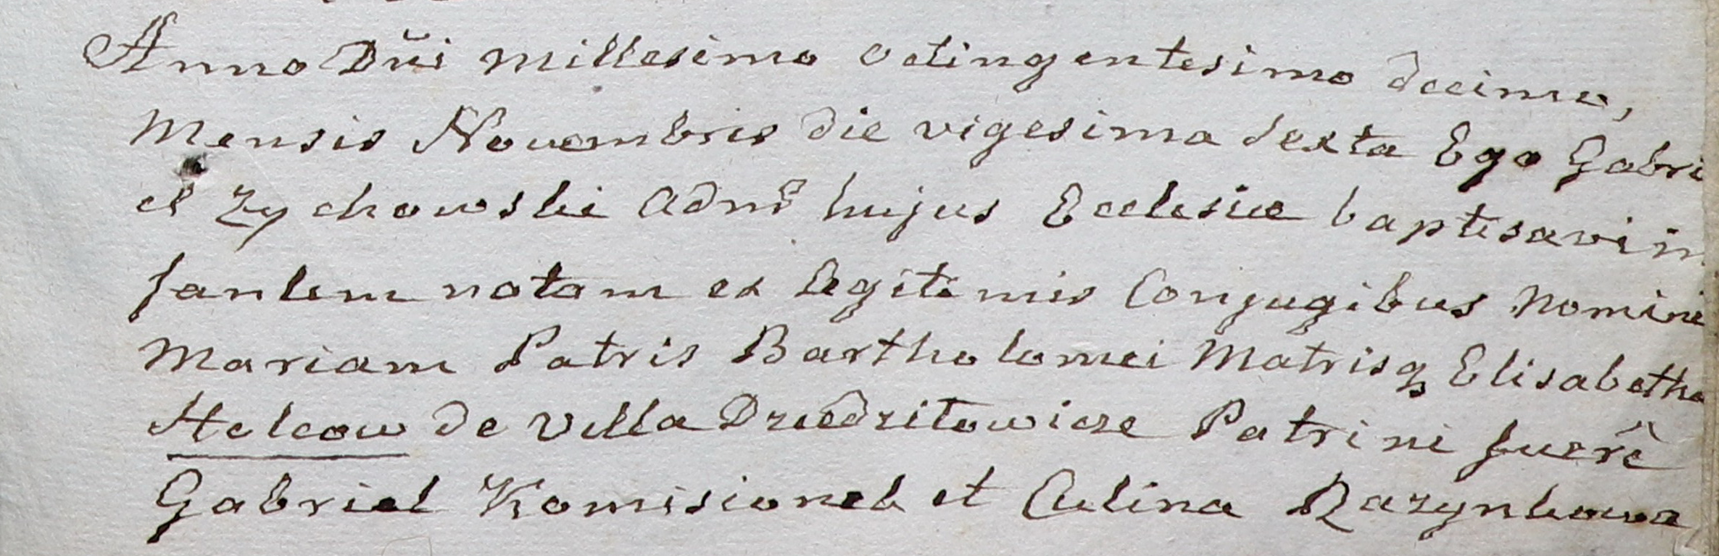 Anno Dňi Millesimo Octingentesimo Decimo,
Mensis Novembris Die vigesima sexta Ego Gabri
el Zychowski Adnr̃ hujus Ecclesiæ baptisavi in
fantem natam ex Legitimis Conjugibus Nomine
Mariam Patris Bartholomei Matrisq Elisabetha
de Villa Dziedzilowicze Patrini fuerẽ
Gabriel et